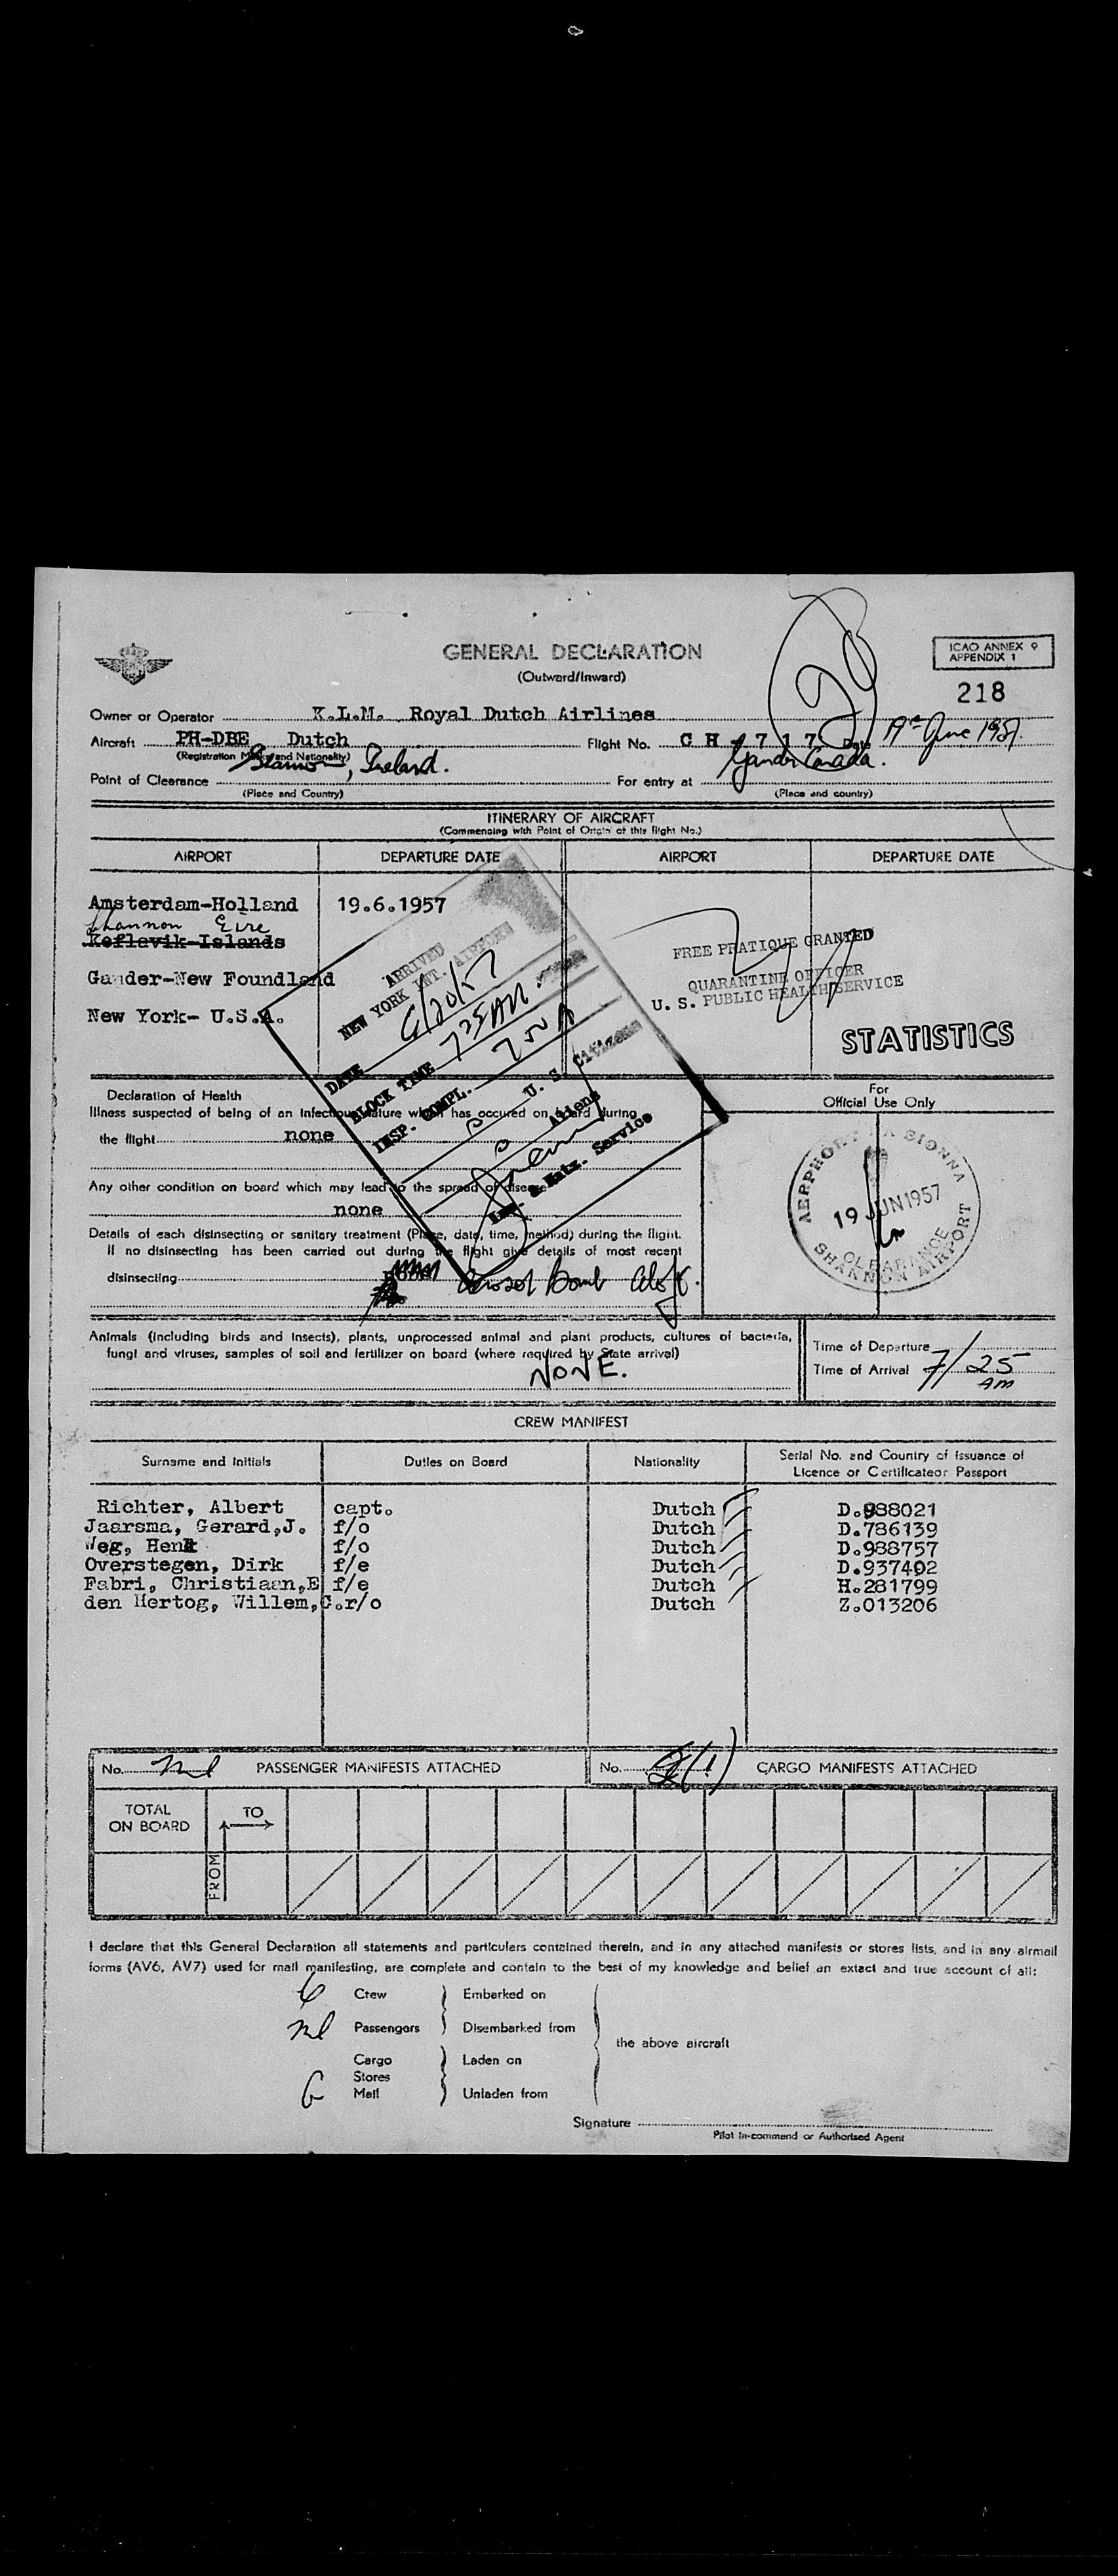 GENERAL DECLARATION
(Outward/Inward)
ICAO ANNEX 9
APPENDIX 1
218
Owner or Operator K.L.M. Royal Dutch Airlines
Aircraft PH-DBE Dutch Flight No. G H 4 7 1 7 Date 19th June 1957.
(Registration Marks and Nationality)
Point of Clearance Shannon, Ireland. For entry at Gander Canada.
(Place and Country) (Place and country)
ITINERARY OF AIRCRAFT
(Commencing with Point of Origin of this flight No.)
AIRPORT DEPARTURE DATE AIRPORT DEPARTURE DATE
Amsterdam-Holland 19.6.1957
Shannon Eire
Keflavik-Islands
Gander-New Foundland
New York- U.S.A.
ARRIVED
NEW YORK INT. AIRPORT
DATE 6/20/57
BLOCK TIME 725 AM.
INSP. COMPL.
U. S. Citizens
Aliens
Imm. & Natz. Service
FREE PRATIQUE GRANTED
QUARANTINE OFFICER
U. S. PUBLIC HEALTH SERVICE
STATISTICS
Declaration of Health
Illness suspected of being of an Infectious nature which has occured on board during
the flight none
Any other condition on board which may lead to the spread of disease
none
Details of each disinsecting or sanitary treatment (Place, date, time, method) during the flight.
If no disinsecting has been carried out during the flight give details of most recent
disinsecting Aerosol Bomb Aloft.
For
Official Use Only
AERPHORT NA SIONNA
19 JUN 1957
CLEARANCE
SHANNON AIRPORT
Animals (including birds and insects), plants, unprocessed animal and plant products, cultures of bacteria,
fungi and viruses, samples of soil and fertilizer on board (where required by State arrival)
NONE.
Time of Departure
Time of Arrival 7/25
AM
CREW MANIFEST
Surname and Initials Duties on Board Nationality Serial No. and Country of issuance of
Licence or Certificateor Passport
Richter, Albert capt. Dutch D.988021
Jaarsma, Gerard,J. f/o Dutch D.786139
Weg, Henk f/o Dutch D.988757
Overstegen, Dirk f/e Dutch D.937402
Fabri, Christiaan,E f/e Dutch H.281799
den Hertog, Willem,C.r/o Dutch Z.013206
No. Nil PASSENGER MANIFESTS ATTACHED No. (1) CARGO MANIFESTS ATTACHED
TOTAL
ON BOARD
TO
FROM
I declare that this General Declaration all statements and particulers contained therein, and in any attached manifests or stores lists, and in any airmail
forms (AV6, AV7) used for mail manifesting, are complete and contain to the best of my knowledge and belief an extact and true account of all:
6 Crew Embarked on
Nil Passengers Disembarked from
the above aircraft
Cargo Laden on
Stores
Mail Unladen from
Signature
Pilot in-command or Authorised Agent